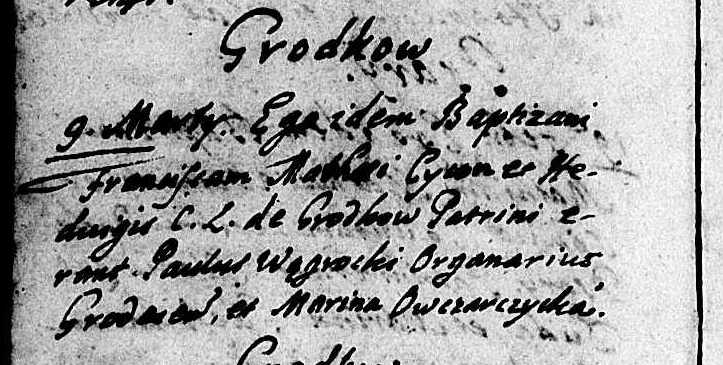 Grodkow
9. Marty. Ego idem Baptizavi
Franciscam Mathei Cywn et He-
dwigis C. L. de Grodkow Patrini e-
rant Paulus Wągrocki Organarius
et Marina Owczarczycka.